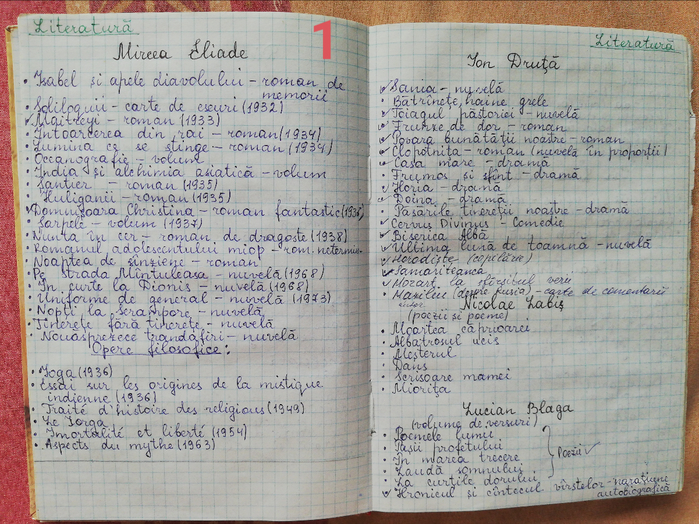 Literatură
Mircea Eliade
• Isabel și apele diavolului – roman de
memorii
• Soliloquii – carte de eseuri (1932)
• Maitreyi – roman (1933)
• Întoarcerea din rai – roman (1934)
• Lumina ce se stinge – roman (1934)
• Oceanografie – volum
• India și alchimia asiatică – volum
• Șantier – roman (1935)
• Huliganii – roman (1935)
• Domnișoara Christina – roman fantastic (1936)
• Șarpele – volum (1937)
• Nunta în cer – roman de dragoste (1938)
• Romanul adolescentului miop – rom. netermin.
• Noaptea de sînziene – roman
• Pe strada Mîntuleasa – nuvelă (1968)
• În curte la Dionis – nuvelă (1968)
• Uniforme de general – nuvelă (1973)
• Nopți la Serampore – nuvelă
• Tinerețe fără tinerețe – nuvelă
• Nouăsprezece trandafiri – nuvelă
Opere filosofice:
• Yoga (1936)
• Essai sur les origines de la mistique
indienne (1936)
• Traité d'histoire des religious (1949)
• Le Yorga
• Imortalité et liberté (1954)
• Aspects du mythe (1963)
1
Literatură
Ion Druță
• Sania – nuvelă
• Bătrînețe, haine grele
• Toiagul păstoriei – nuvelă
• Frunze de dor – roman
• Povara bunătății noastre – roman
• Clopotnița – roman (nuvelă în proporții)
• Casa mare – dramă
• Frumos și sfînt – dramă
• Horia – dramă
• Doina – dramă
• Păsările tinereții noastre – dramă
• Cervus Divinus – Comedie
• Biserica Albă
• Ultima lună de toamnă – nuvelă
• Horodiște (copilărie)
• Samariteanca
• Mozart la sfîrșitul verii
• (despre Rusia) – carte de comentarii
Nicolae Labiș
(poezii și poeme)
• Moartea căprioarei
• Albatrosul ucis
• Meșterul
• Dans
• Scrisoare mamei
• Miorița
Lucian Blaga
(volume de versuri)
• Poemele lumii
• Pașii profetului
• În marea trecere
• Laudă somnului
• La curțile dorului
Poezii
• Hronicul și cîntecul vîrstelor – narațiuni
autobiografică